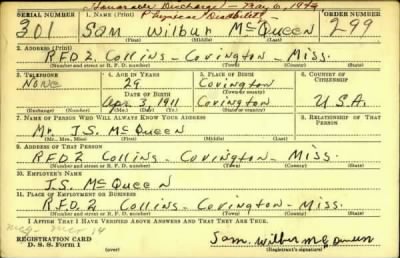 Honorable Discharge - May 6, 1944
Physical Disability
SERIAL NUMBER 1. NAME (Print) ORDER NUMBER
301 Sam Wilbur McQueen 299
(First) (Middle) (Last)
2. ADDRESS (Print)
R.F.D. 2 Collins - Covington - Miss.
(Number and street or R. F. D. number) (Town) (County) (State)
3. TELEPHONE 4. AGE IN YEARS 5. PLACE OF BIRTH 6. COUNTRY OF CITIZENSHIP
None 29 Covington
DATE OF BIRTH (Town or county)
Apr 3, 1911 Covington U.S.A.
(Exchange) (Number) (Mo.) (Day) (Yr.) (State or country)
7. NAME OF PERSON WHO WILL ALWAYS KNOW YOUR ADDRESS 8. RELATIONSHIP OF THAT PERSON
Mr. J.S. McQueen
(Mr., Mrs., Miss) (First) (Middle) (Last)
9. ADDRESS OF THAT PERSON
R.F.D. 2 Collins - Covington - Miss.
(Number and street or R. F. D. number) (Town) (County) (State)
10. EMPLOYER'S NAME
J.S. McQueen
11. PLACE OF EMPLOYMENT OR BUSINESS
R.F.D. 2 Collins - Covington - Miss.
(Number and street or R. F. D. number) (Town) (County) (State)
I AFFIRM THAT I HAVE VERIFIED ABOVE ANSWERS AND THAT THEY ARE TRUE.
REGISTRATION CARD
D. S. S. Form 1 (over) Sam Wilbur McQueen
(Registrant's signature)